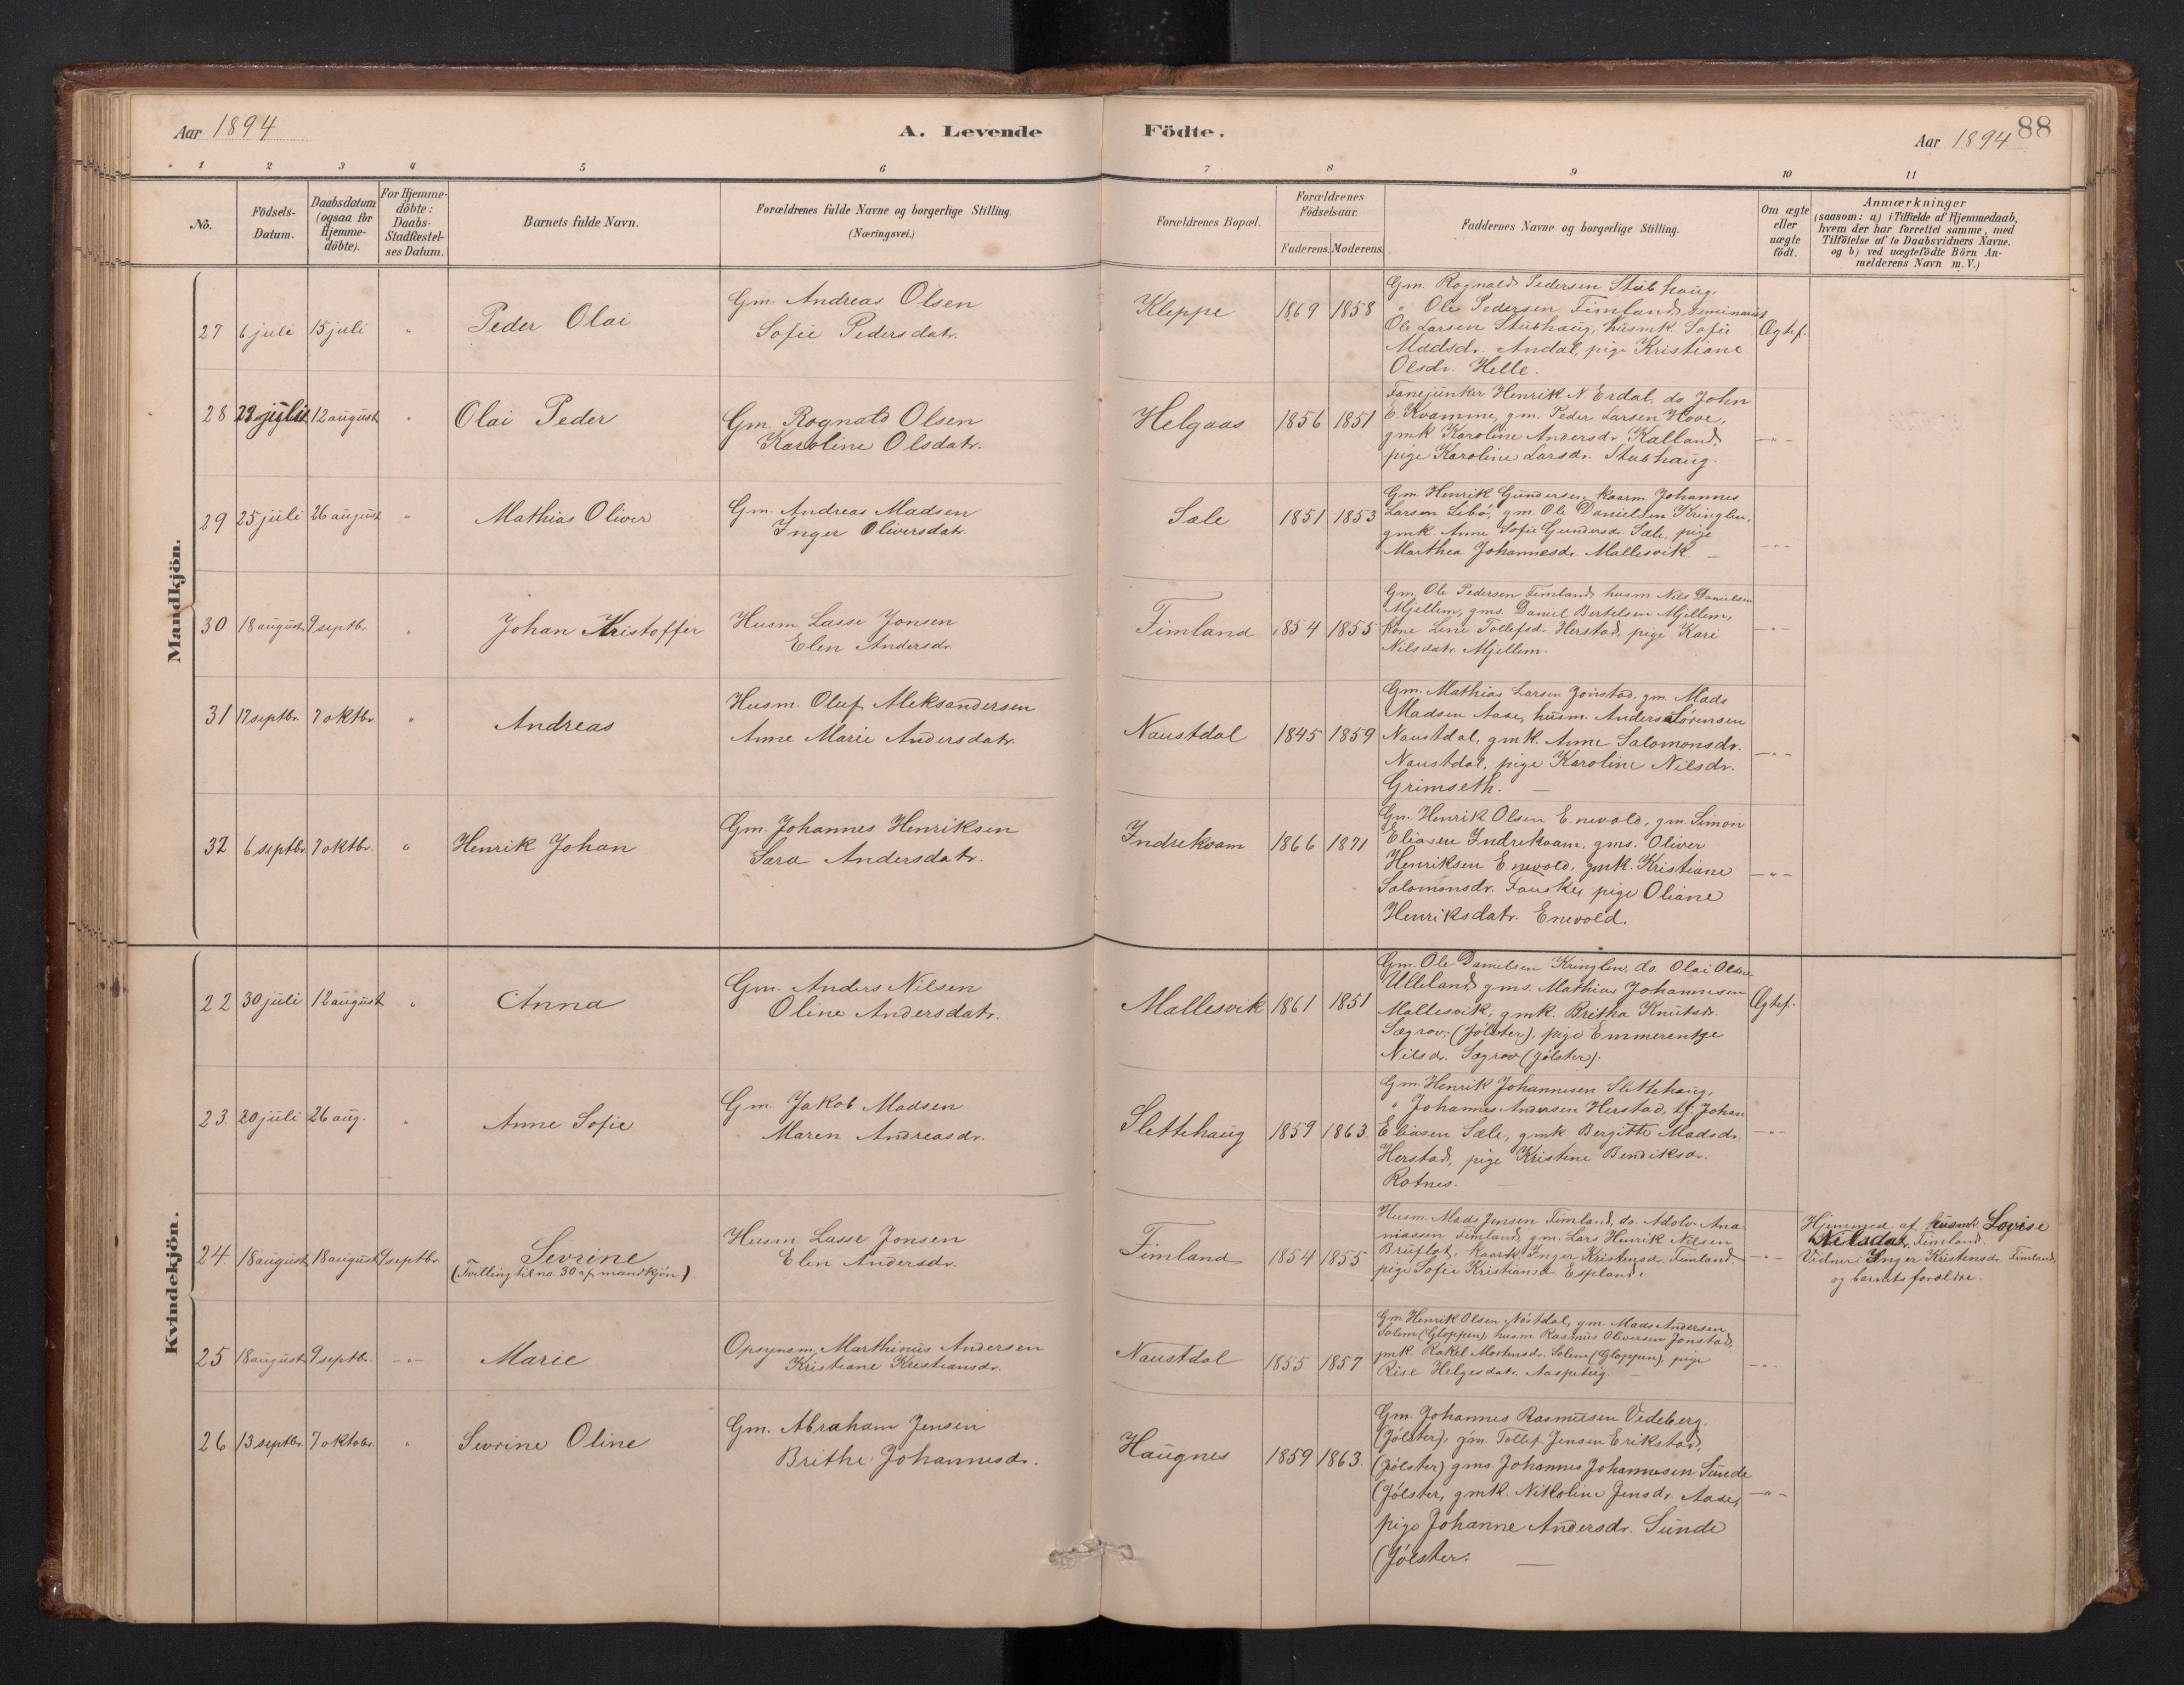 Aar 1894
A. Levende
Födte.
Aar 1894
88
1 2 3 4 5 6 7 8 9 10 11
No.
Födsels-
Datum.
Daabsdatum
(ogsaa for
Hjemme-
döbte).
For Hjemme-
döbte:
Daabs-
Stadfæstel-
ses Datum.
Barnets fulde Navn.
Forældrenes fulde Navne og borgerlige Stilling.
(Næringsvei.)
Forældrenes Bopæl.
Forældrenes
Födselsaar.
Faderens. Moderens.
Faddernes Navne og borgerlige Stilling.
Om ægte
eller
uægte
födt.
Anmærkninger
(saasom: a) i Tilfælde af Hjemmedaab,
hvem der har forrettet samme, med
Tilföielse af to Daabsvidners Navne.
og b) ved uægtefödte Börn An-
melderens Navn m. V.)
Mandkjön.
27 6 juli 15 juli " Peder Olai
Gm. Andreas Olsen
Sofie Pedersdatr.
Kleppe 1869 1858
Gm. Rognald Pedersen Stubhaug,
" Ole Pedersen Fimland, seminarist
Ole Larsen Stubhaug, husmk. Sofie
Madsdr. Andal, pige Kristiane
Olsdr. Helle.
Ægtef.
28 juli 12 august " Olai Peder
Gm. Rognald Olsen
Karoline Olsdatr.
Helgaas 1856 1851
Fanejunker Henrik N. Erdal, do John
E. Kvamme, gm. Peder Larsen Hove,
gmk. Karoline Andersdr. Kalland,
pige Karoline Larsdr. Stubhaug.
—"—
29 25 juli 26 august " Mathias Oliver
Gm. Andreas Madsen
Inger Oliversdatr.
Sæle 1851 1853
Gm. Henrik Gundersen, kaarm. Johannes
Larsen Libö, gm. Ole Danielsen Kringlen,
gmk. Anne Sofie Gundersdr. Sæle, pige
Marthea Johannesdr. Mallesvik —
—"—
30 18 august 9 septb. " Johan Kristoffer
Husm. Lasse Jonsen
Elen Andersdr.
Fimland 1854 1855
Gm. Ole Pedersen Fimland, husm. Nils Danielsen
Mjellem, gms. Daniel Bertelsen Mjellem,
kone Lene Tollefsdr. Herstad, pige Kari
Nilsdatr. Mjellem.
—"—
31 17 septbr. 7 oktbr. " Andreas
Husm. Oluf Aleksandersen
Anne Marie Andersdatr.
Naustdal 1845 1859
Gm. Mathias Larsen Jonstad, gm. Mads
Madsen Aase, husm. Anders Sörensen
Naustdal, gmk. Anne Salomonsdr.
Naustdal, pige Karoline Nilsdr.
Grimseth. —
—"—
32 6 septbr. 7 oktbr. " Henrik Johan
Gm. Johannes Henriksen
Sara Andersdatr.
Indrekvam 1866 1871
Gm. Henrik Olsen Enevold, gm. Simon
Eliasen Indrekvam, gms. Oliver
Henriksen Enevold, gmk. Kristiane
Salomonsdr. Fauske, pige Oliane
Henriksdatr. Enevold.
—"—
Kvindekjön.
22 30 juli 12 august " Anna
Gm. Anders Nilsen
Oline Andersdatr.
Mallesvik 1861 1851
Gm. Ole Danielsen Kringlen, do. Olai Olsen
Ulleland, gms. Mathias Johannesen
Mallesvik, gmk. Britha Knutsdr.
Sægrov, (Jölster), pige Emmerentze
Nilsdr. Sægrov (Jölster).
Ægtef.
23. 20 juli 26 aug. " Anne Sofie
Gm. Jakob Madsen
Maren Andreasdr.
Slettehaug 1859 1863.
Gm. Henrik Johannesen Slettehaug,
" Johannes Andersen Herstad, tj. Johan
Eliasen Sæle, gmk Bergitte Madsdr.
Herstad, pige Kristine Bendiksdr.
Rotnes. —
—"—
24 18 august 18 august 9 septbr. Sevrine
(Tvilling til no. 30 af mandkjön).
Husm. Lasse Jonsen
Elen Andersdr.
Fimland 1854 1855
Husm. Mads Jensen Fimland, do. Adolv Ana-
niassen Fimland, gm. Lars Henrik Nilsen
Bruflot, kaark. Inger Kristensdr. Fimland,
pige Sofie Kristiansdr. Espland.
—"—
Hjemmed. af husmk. Lovise
Nilsdatr. Fimland.
Vidner: Inger Kristensdr. Fimland,
og barnets forældre.
25 18 august 9 septbr. —"— Marie
Opsynsm. Marthinus Andersen
Kristiane Kristiansdr.
Naustdal 1855 1857
Gm. Henrik Olsen Nöstdal, gm. Mads Andersen
Solem (Gloppen), husm. Rasmus Oliversen Jonstad,
gmk Rakel Mortensdr. Solem (Gloppen), pige
Rise Helgesdatr. —
—"—
26 13 septbr. 7 oktobr. " Sevrine Oline
Gm. Abraham Jensen
Brithe Johannesdr.
Haugnes 1859 1863.
Gm. Johannes Rasmusen Vedeberg.
(Jölster), gm. Tollef Jensen Erikstad,
(Jölster) gms. Johannes Johannesen Sunde
(Jölster, gmk. Nikoline Jensdr. Aase,
pige Johanne Andersdr. Sunde
(Jölster. —
—"—